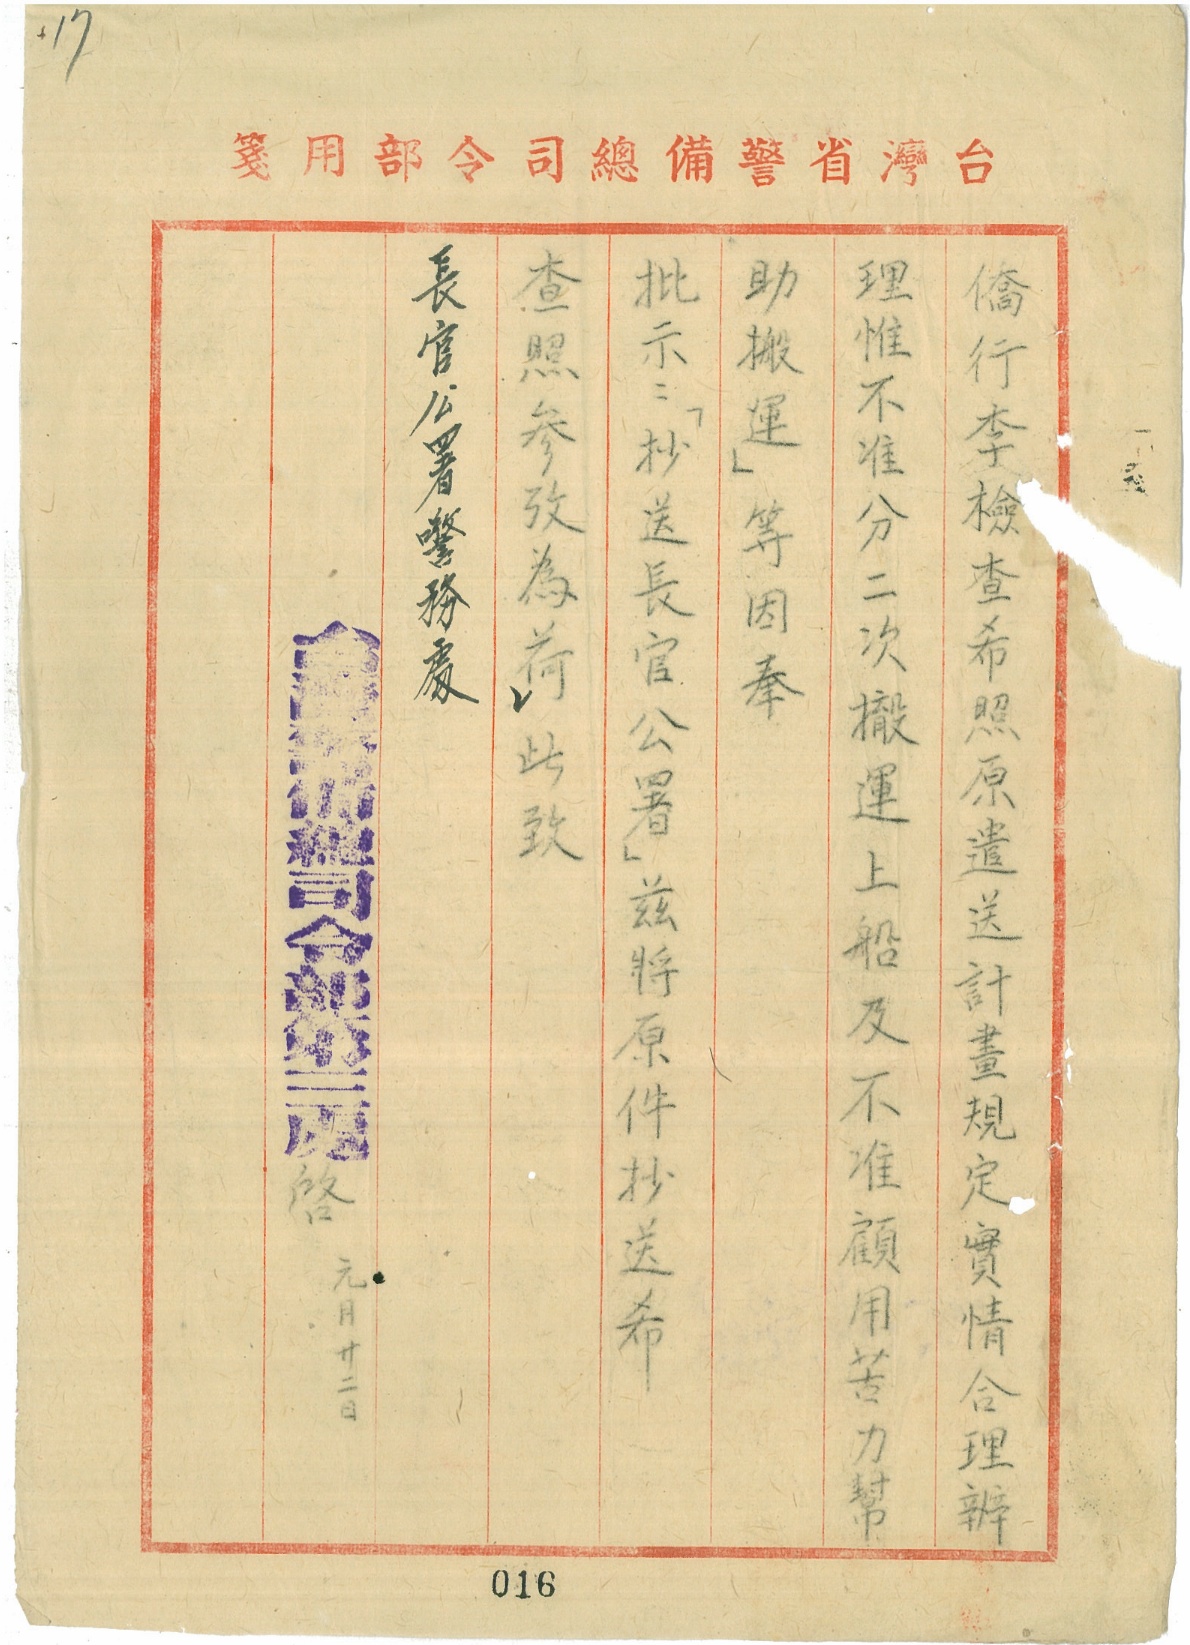 17
台灣省警備總司令部用箋
僑行李檢查希照原遣送計畫規定實情合理辦
理惟不准分二次搬運上船及不准顧用苦力幫
助搬運」等因奉
批示：「抄送長官公署」茲將原件抄送希
查照參攷為荷此致
長官公署警務處
台灣省警備總司令部第三處啓
元月廿二日
016